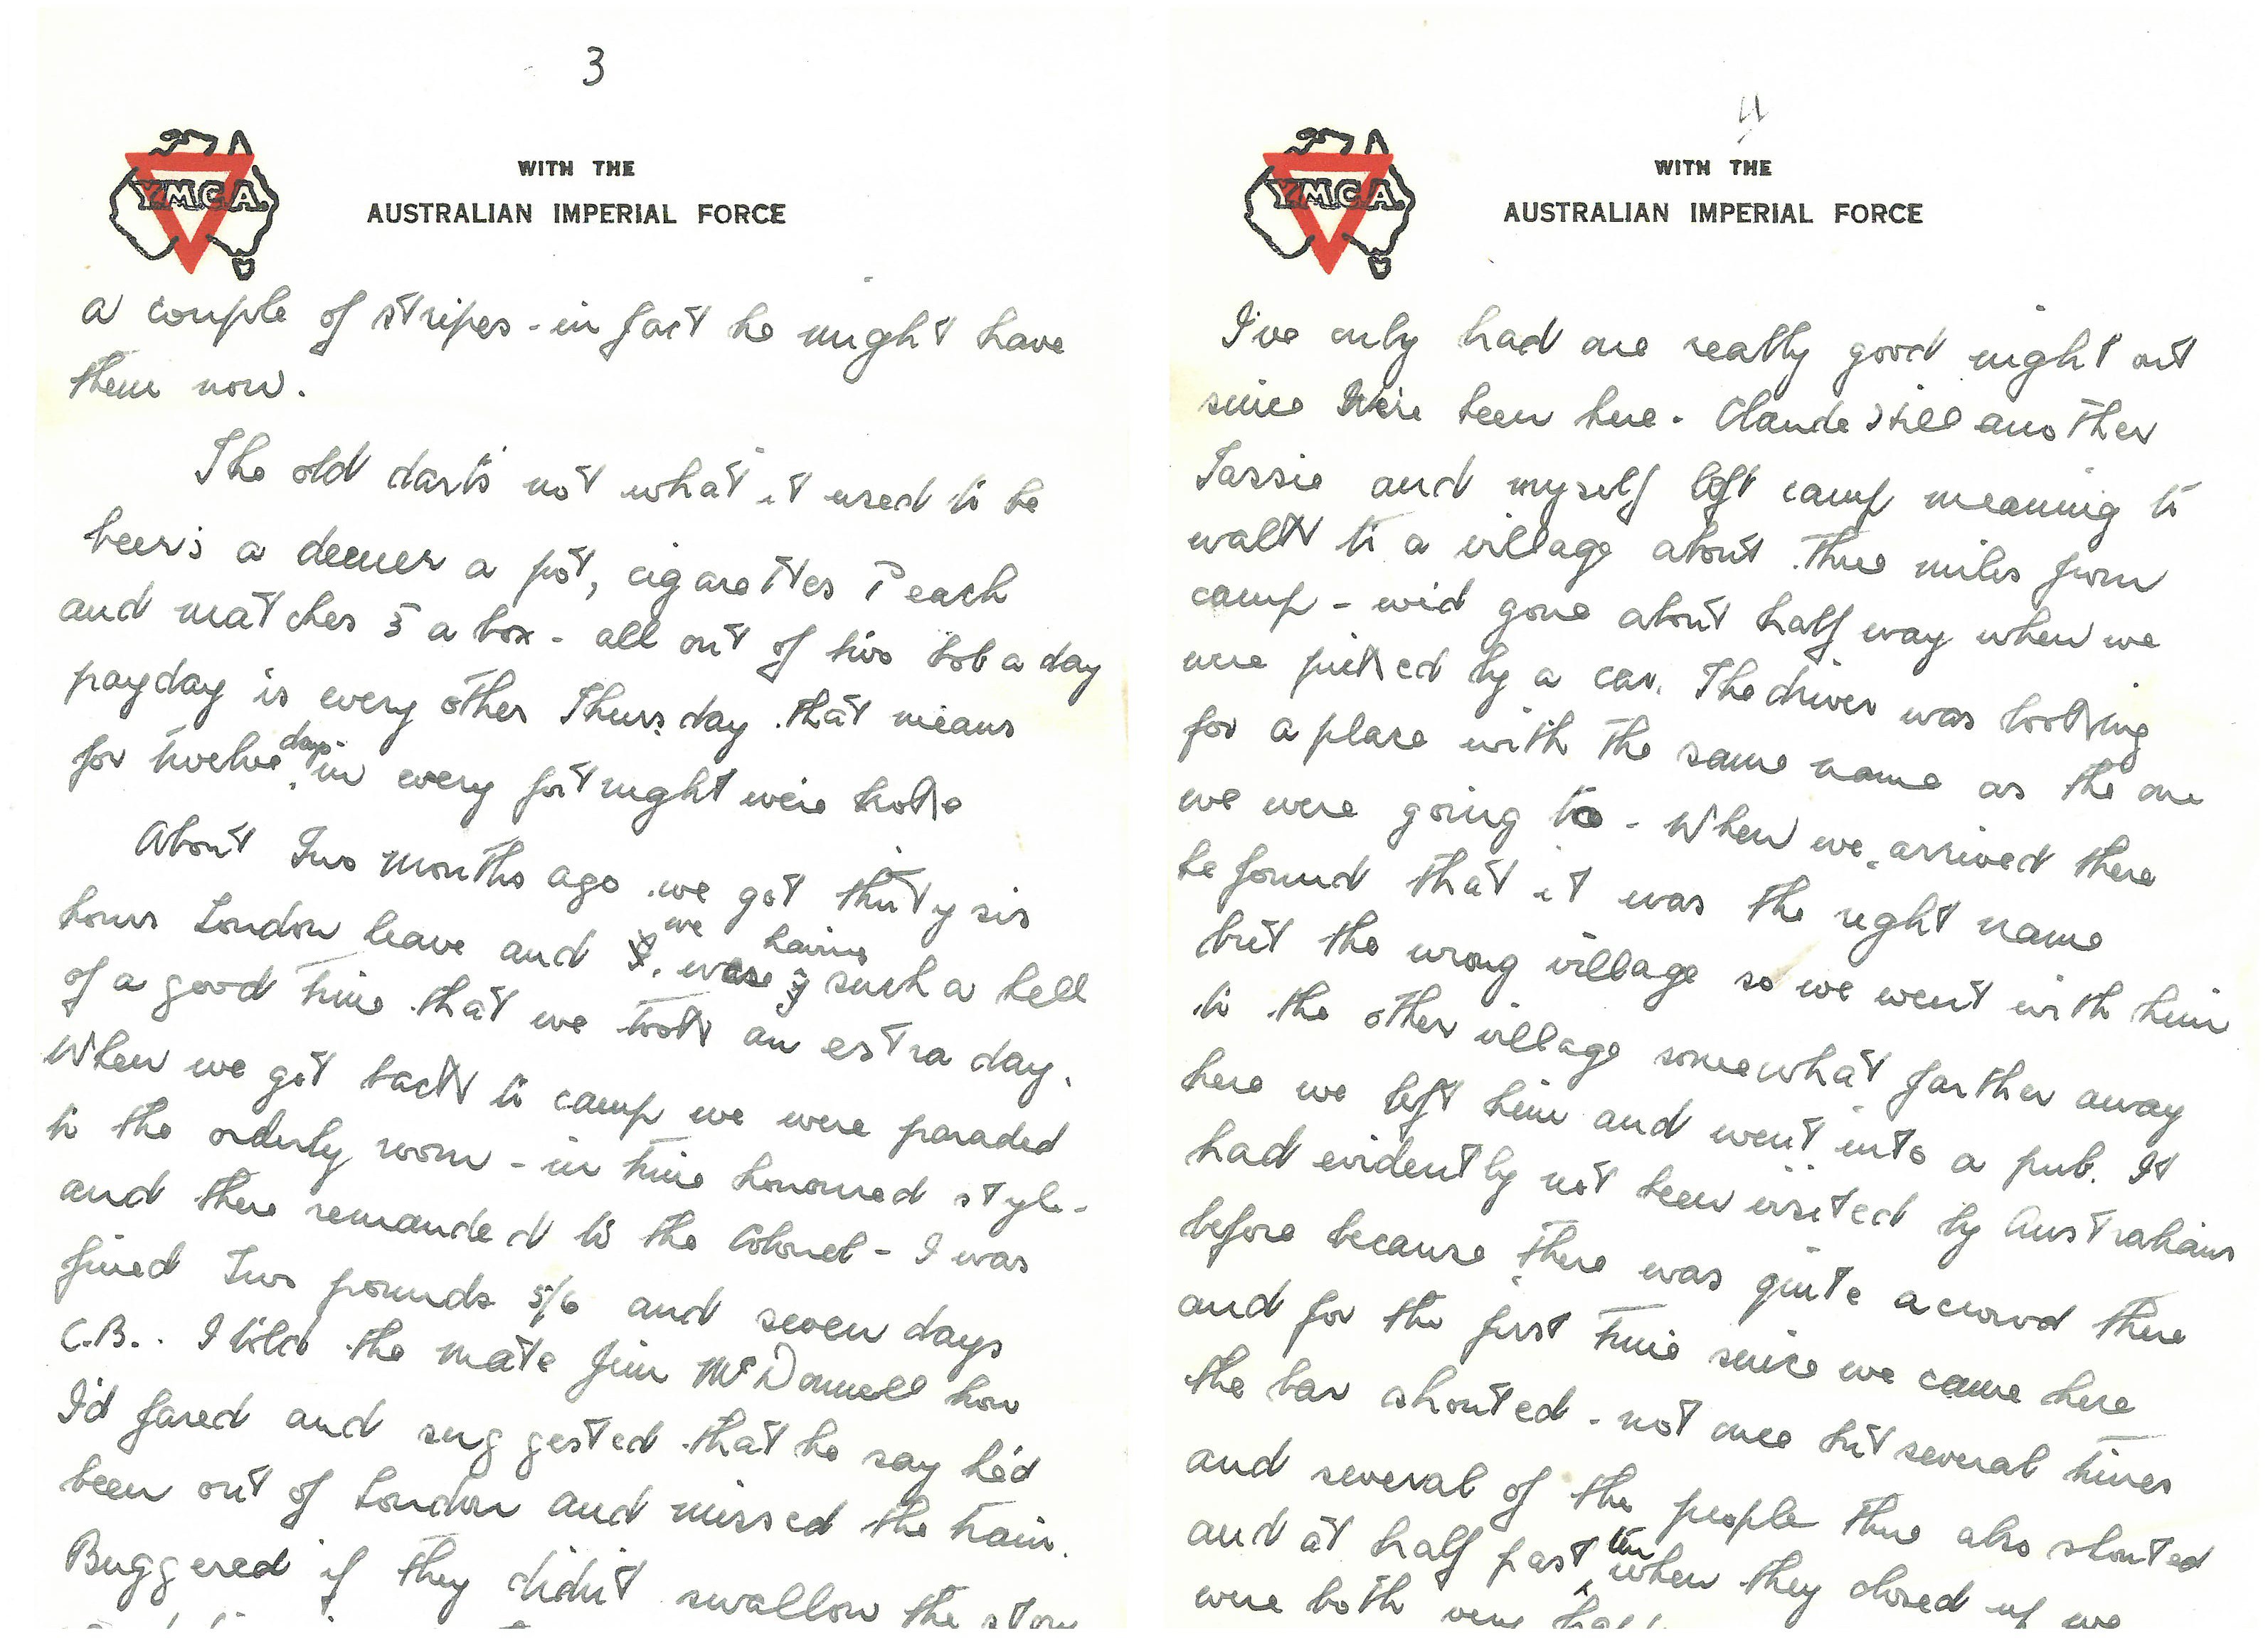 3
Y.M.C.A.
WITH THE
AUSTRALIAN IMPERIAL FORCE
a couple of stripes - in fact he might have
them now.
The old dart's not what it used to be
beer's a deener a pot, cigarettes 1d each
and matches a box - all out of two bob a day
payday is every other Thursday that means
for twelve days in every fortnight we're broke
About two months ago we got thirty six
hours London leave and we were having such a hell
of a good time that we took an extra day.
When we got back to camp we were paraded
to the orderly room - in time honoured style -
and there remanded to the Colonel - I was
fined two pounds 5/6 and seven days
C.B.. I told the mate Jim McDonnell how
I'd fared and suggested that he say he'd
been out of London and missed the train.
Buggered if they didn't swallow the story
4
Y.M.C.A.
WITH THE
AUSTRALIAN IMPERIAL FORCE
I've only had one really good night out
since We've been here. Claude still another
Tassie and myself left camp meaning to
walk to a village about three miles from
camp - we'd gone about half way when we
were picked by a car. The driver was looking
for a place with the same name as the one
we were going to - When we arrived there
he found that it was the right name
but the wrong village so we went with him
to the other village somewhat farther away
here we left him and went into a pub. It
had evidently not been visited by Australians
before because there was quite a crowd there
and for the first time since we came here
the bar shouted - not once but several times
and several of the people there also shouted
and at half past ten when they closed up we
were both very